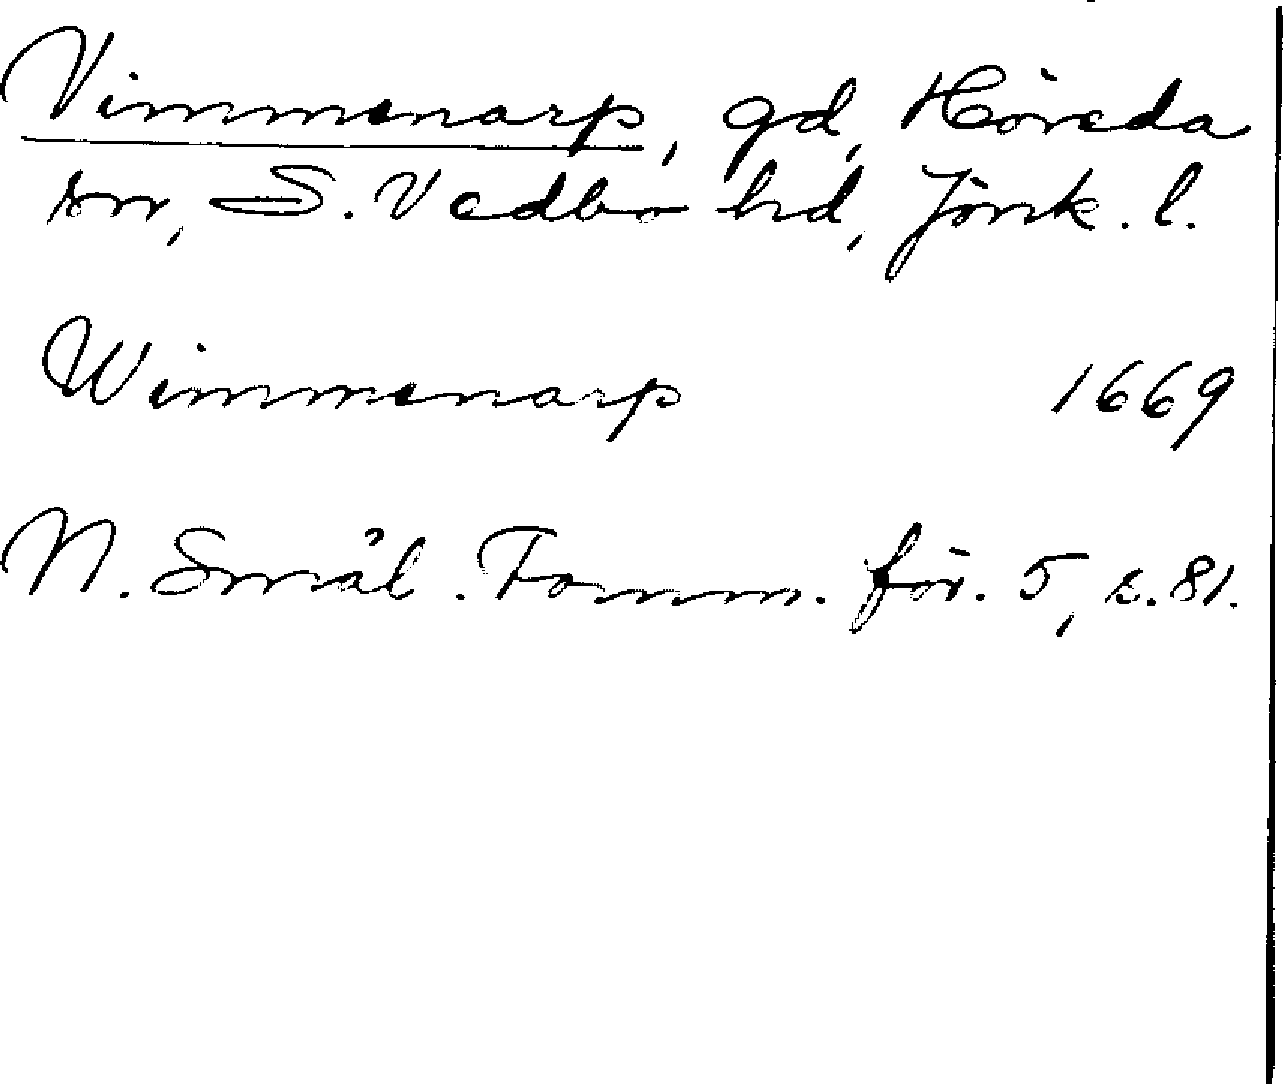 Vimmenarp, gd, Höreda
sn, S. Vedbo hd, Jönk. l.
Wimmenarp 1669
N. Smål. Fornm. för. 5, s. 81.